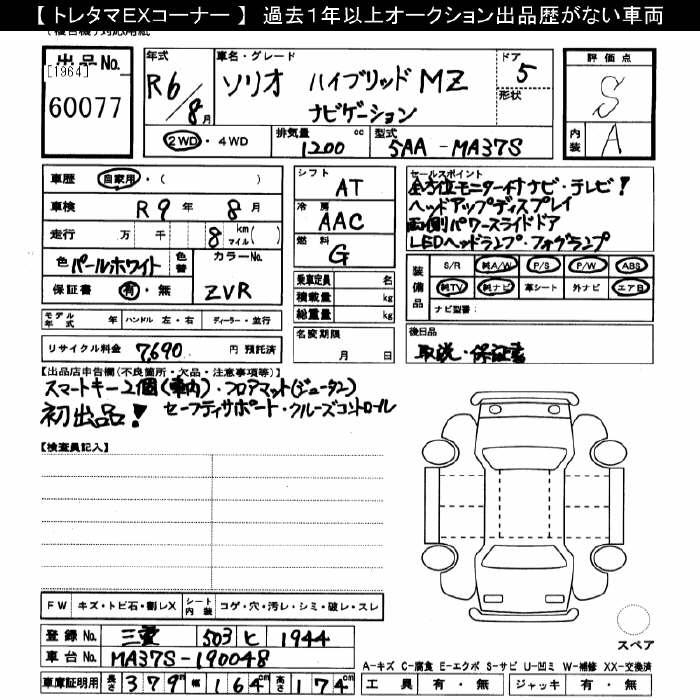 【 トレタマEXコーナー 】 過去1年以上オークション出品歴がない車両
出品No.
[1964]
60077
年式
R6/8月
車名・グレード
ソリオ ハイブリッド MZ
ナビゲーション
ドア
5
形状
評価点
S
内装
A
2WD・4WD
排気量
1200 cc
型式
5AA-MA37S
車歴
自家用・( )
車検
R9年 8月
走行
万 千 8 km マイル( )
色
パールホワイト
色替
カラーNo.
ZVR
保証書
有・無
シフト
AT
冷房
AAC
燃料
G
乗車定員 名
積載量 kg
総重量 kg
セールスポイント
全方位モニター付ナビ・テレビ!
ヘッドアップディスプレイ
両側パワースライドドア
LEDヘッドランプ・フォグランプ
装備品
S/R 純A/W P/S P/W ABS
純TV 純ナビ 革シート 外ナビ エアB
ナビ型番:
モデル年式 年 ハンドル 左・右 ディーラー・並行
リサイクル料金 7,690 円 預託済
名変期限
月 日
後日品
取説・保証書
【出品店申告欄(不良箇所・欠品・注意事項等)】
スマートキー2個(車内)・フロアマット(ジュータン)
初出品! セーフティサポート・クルーズコントロール
【検査員記入】
FW キズ・トビ石・割レX
シート内装 コゲ・穴・汚レ・シミ・破レ・スレ
登録No. 三重 503 ヒ 1944
車台No. MA37S-190048
車庫証明用 長さ 379cm 幅 164cm 高さ 174cm
スペア
A-キズ C-腐食 E-エクボ S-サビ U-凹ミ W-補修 XX-交換済
工具 有・無 ジャッキ 有・無